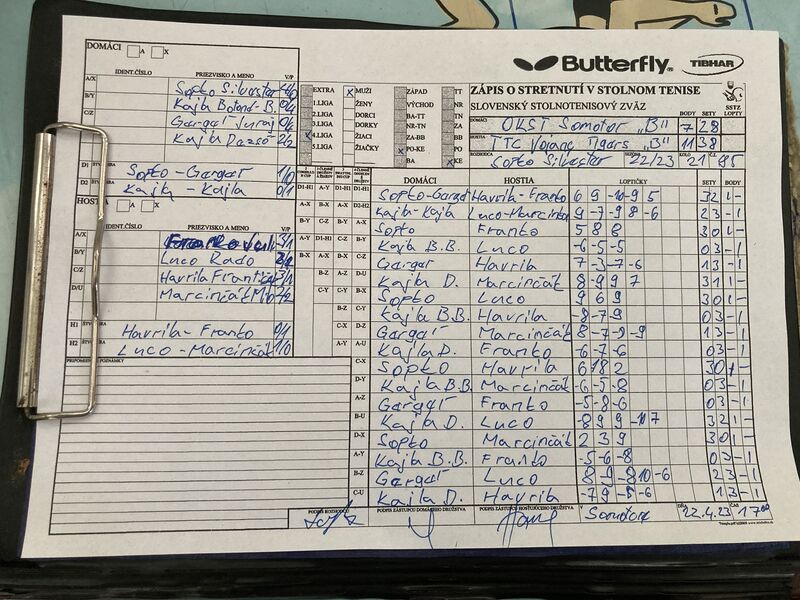 DOMÁCI A X
IDENT.ČÍSLO PRIEZVISKO A MENO V/P
A/X Sopko Silvester 4/0
B/Y Kajla Botond-B. 0/4
C/Z Gargaľ Juraj 0/4
D/U Kajla Dezső 2/2
D1 Sopko-Gargaľ 1/0
D2 Kajla-Kajla 0/1
HOSTIA A X
IDENT.ČÍSLO PRIEZVISKO A MENO V/P
A/X Franko 3/1
B/Y Luco Rado
C/Z Havrila František 3/1
D/U Marcinčák 2/2
H1 Havrila-Franko 0/1
H2 Luco-Marcinčák 1/0
PRIPOMIENKY POZNÁMKY
EXTRA X MUŽI ZÁPAD TT
1.LIGA ŽENY VÝCHOD NR
2.LIGA DORCI BA-TT TN
3.LIGA DORKY NR-TN ZA
X 4.LIGA ŽIACI ZA-BB BB
5.LIGA ŽIAČKY X PO-KE PO
BA X KE
Butterfly TIBHAR
ZÁPIS O STRETNUTÍ V STOLNOM TENISE
SLOVENSKÝ STOLNOTENISOVÝ ZVÄZ
SSTZ
BODY SETY LOPTY
DOMÁCI OKST Somotor "B" 7 28
HOSTIA TTC Vojany Tigers "B" 11 38
Sopko Silvester SEZÓNA 22/23 KOLO 21 Č.Z. 85
DOMÁCI HOSTIA LOPTIČKY SETY BODY
D1-H1 Sopko-Gargaľ Havrila-Franko 6 9 -10 -9 5 3 2 1 -
D2-H2 Kajla-Kajla Luco-Marcinčák 9 -7 -9 8 -6 2 3 - 1
A-X Sopko Franko 5 8 8 3 0 1 -
B-Y Kajla B.B. Luco -6 -5 -5 0 3 - 1
C-Z Gargaľ Havrila 7 -3 -7 -6 1 3 - 1
D-U Kajla D. Marcinčák 8 -9 9 7 3 1 1 -
A-Y Sopko Luco 9 6 9 3 0 1 -
B-Z Kajla B.B. Havrila -8 -7 9 0 3 - 1
C-U Gargaľ Marcinčák 8 -7 -9 -9 1 3 - 1
D-X Kajla D. Franko -6 -7 -6 0 3 - 1
Sopko Havrila 6 18 2 3 0 1 -
Kajla B.B. Marcinčák -6 -5 -8 0 3 - 1
Gargaľ Franko -5 -8 -6 0 3 - 1
Kajla D. Luco 8 9 9 -10 7 3 2 1 -
Sopko Marcinčák 2 3 9 3 0 1 -
Kajla B.B. Franko -5 -6 -8 0 3 - 1
Gargaľ Luco 8 9 -8 -10 -6 2 3 - 1
Kajla D. Havrila -7 9 -5 -6 1 3 - 1
PODPIS ROZHODCU PODPIS ZÁSTUPCU DOMÁCEHO DRUŽSTVA PODPIS ZÁSTUPCU HOSŤUJÚCEHO DRUŽSTVA V Somotore DŇA 22.4.23 ČAS 17 00